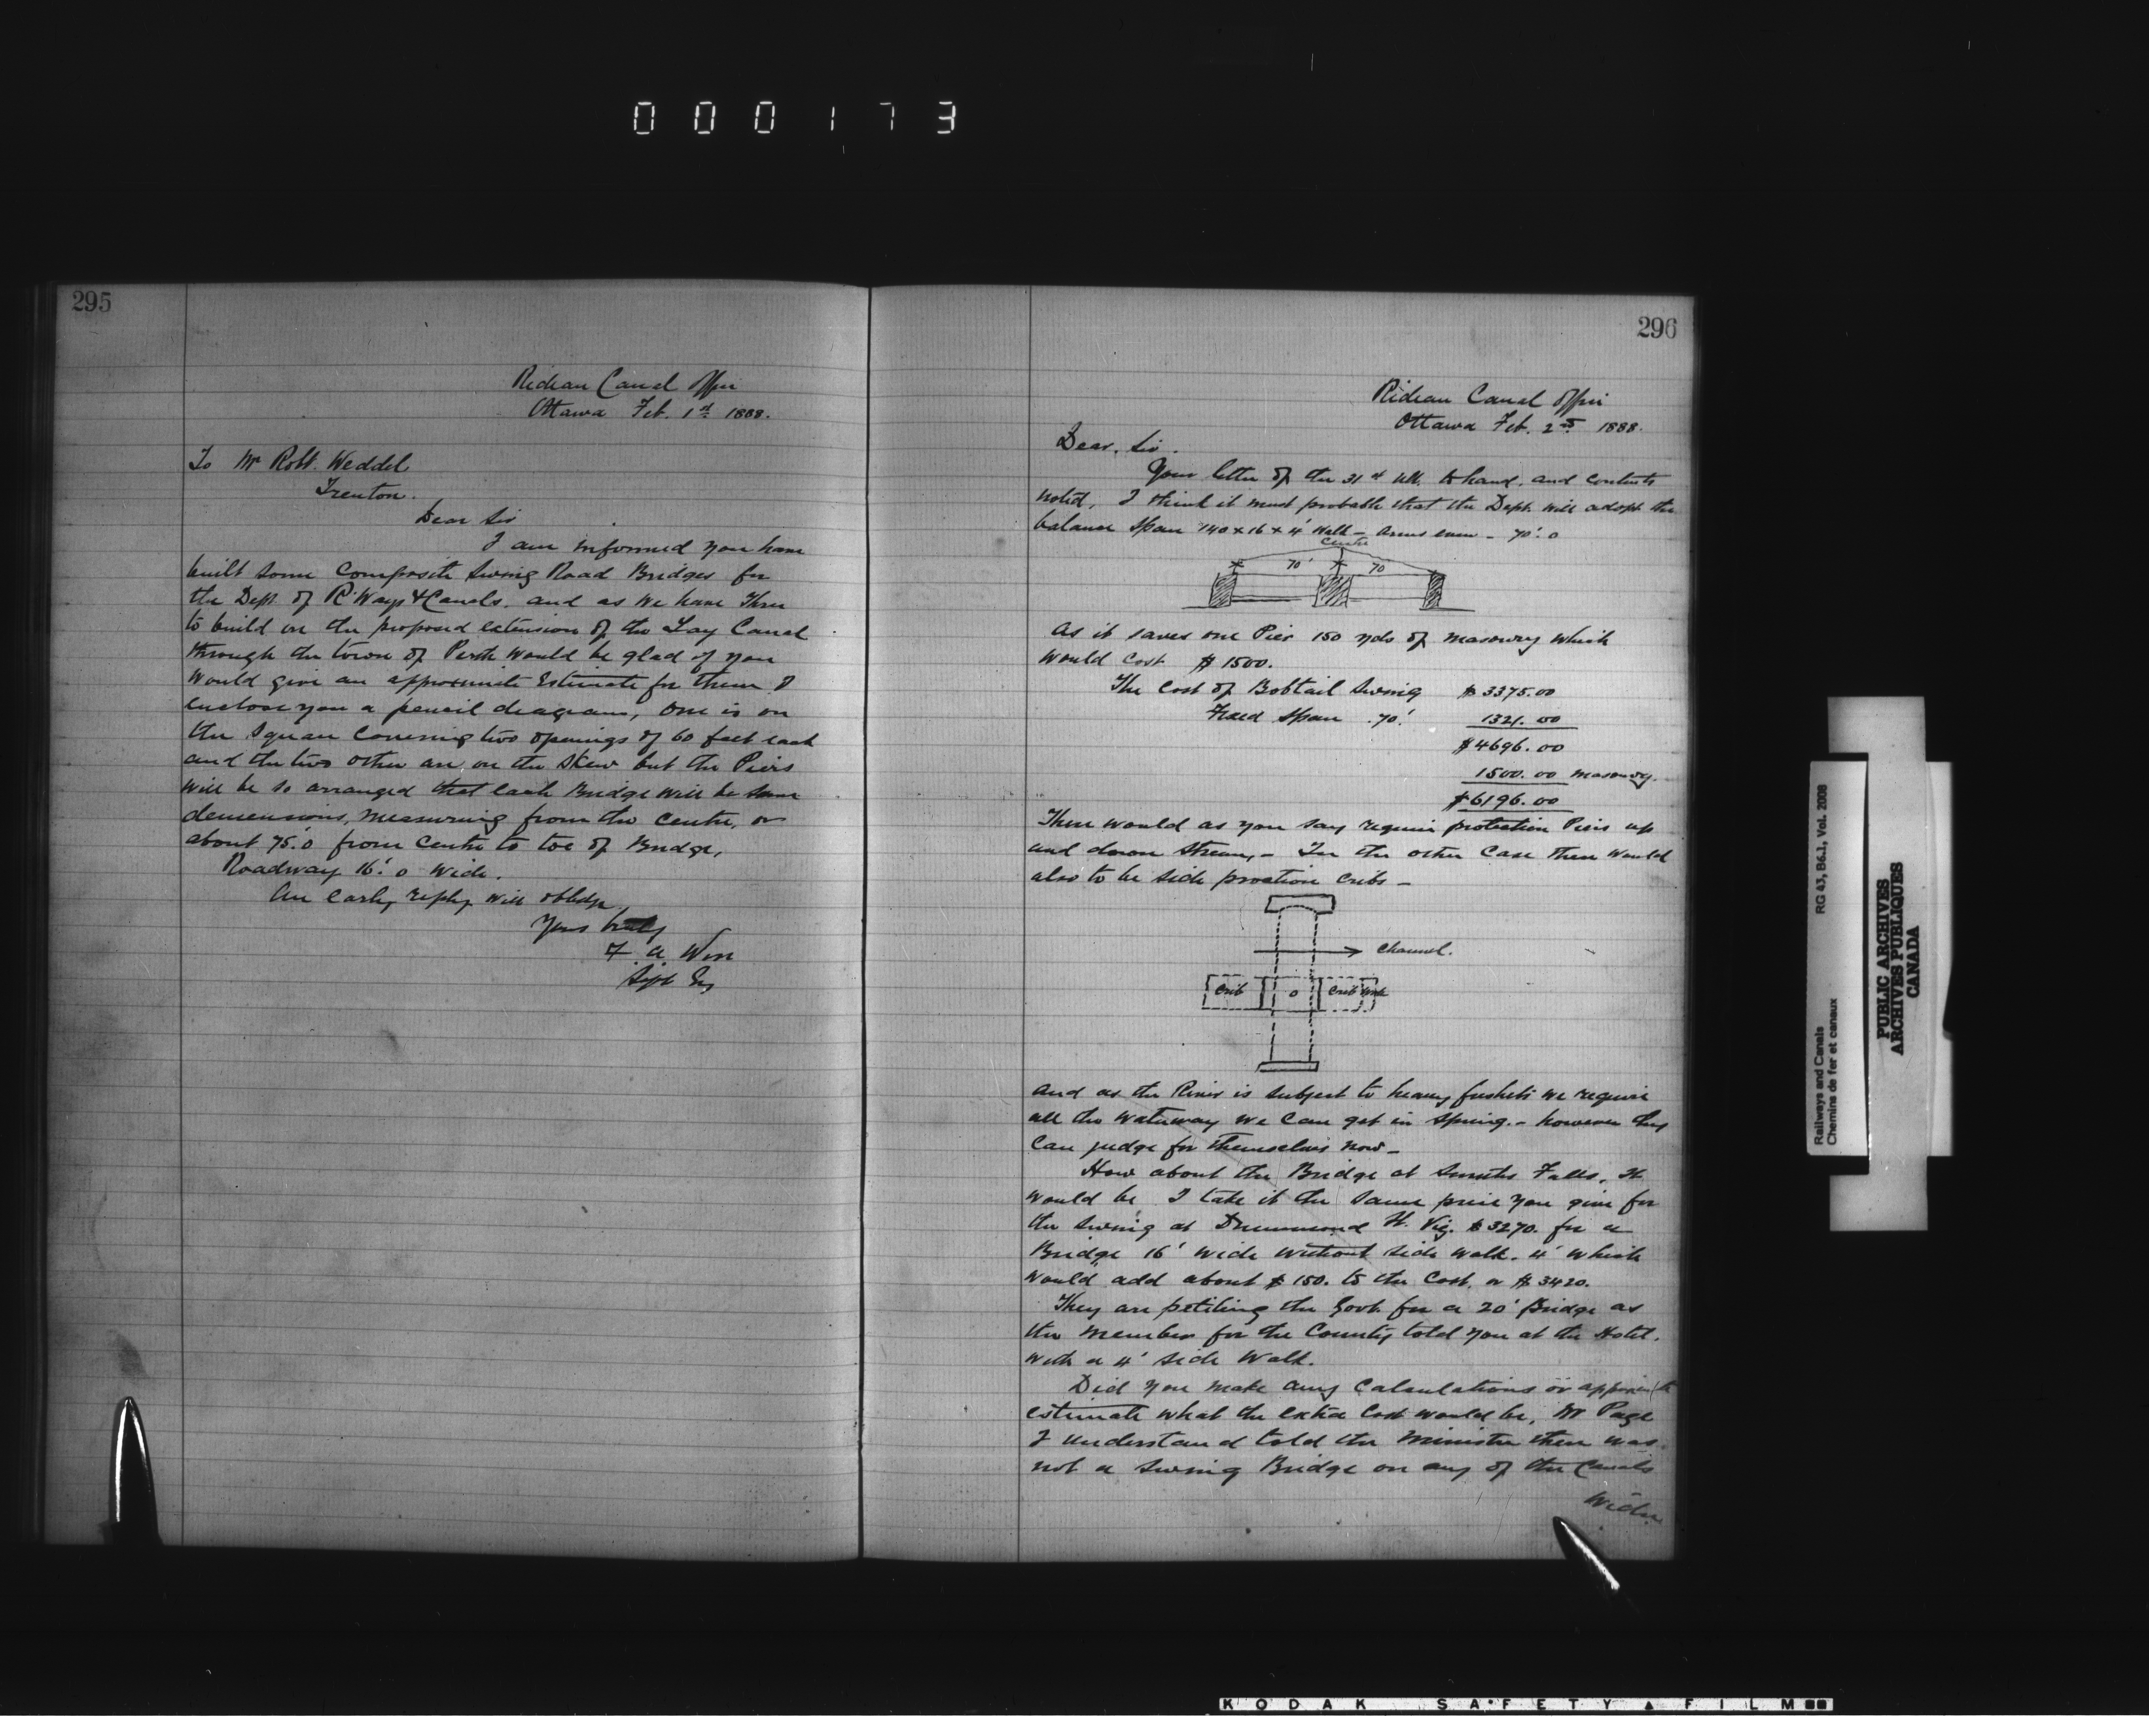 000173
295
Rideau Canal Office
Ottawa Feb. 1st 1888.
To Mr Robt. Weddel
Trenton.
Dear Sir
I am informed you have
built some Composite Swing Road Bridges for
the Dept. of R'Ways & Canals. and as we have Three
to build on the proposed extension of the Tay Canal
through the town of Perth would be glad if you
would give an approximate Estimate for them. I
enclose you a pencil diagram, one is on
the square covering two openings of 60 feet each
and the two other are on the skew but the Piers
will be so arranged that each Bridge will be same
demensions, measuring from the centre, or
about 75'.0 from centre to toe of Bridge,
Roadway 16'.0 wide.
An early reply will oblidge
Yours truly
F. A. Wise
Supt Eng
296
Rideau Canal Office
Ottawa Feb. 2nd 1888.
Dear, Sir.
Your letter of the 31st Ult. to hand, and contents
noted, I think it most probable that the Dept. will adopt the
balance span 140 x 16 x 4' Walk – Arms even – 70'.0
Centre
70' 70
As it saves one Pier 150 yds of masonry which
would cost $1500.
The Cost of Bobtail Swing $3375.00
Fixed span .70'. 1321.00
$4696.00
1500.00 masonry.
$6196.00
There would as you say require protection Piers up
and down stream, – In the other case there would
also to be side proction cribs –
Channel.
Crib O Crib work
and as the River is subject to heavy freshets we require
all the waterway we can get in spring. – however they
can judge for themselves now –
How about the Bridge at Smiths Falls. It
would be I take it the same price you give for
the swing at Drummond St. Viz. $3270. for a
Bridge 16' wide without side walk. 4' which
would add about $150. to the Cost. or $3420.
They are petiting the Govt. for a 20' Bridge as
the member for the County told you at the Hotel.
with a 4' side walk.
Did you make any Calculations or approximate
estimate what the extra cost would be, Mr Page
I understand told the Minister there was
not a swing Bridge on any of the Canals
wider
Railways and Canals RG 43, B6.1, Vol. 2008
Chemins de fer et canaux
PUBLIC ARCHIVES
ARCHIVES PUBLIQUES
CANADA
KODAK SAFETY FILM